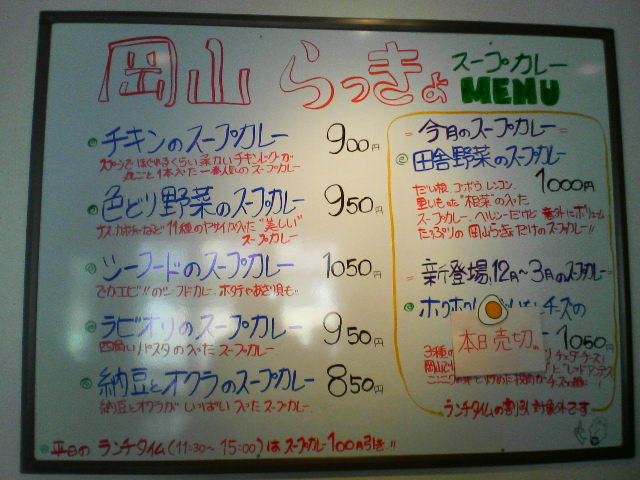 岡山 らっきょ
スープカレー
MENU
チキンのスープカレー 900円
スプーンでほぐれるくらい柔かいチキンレッグが
丸ごと1本入った一番人気のスープカレー
色どり野菜のスープカレー 950円
ナス、カボチャなど11種のヤサイが入った"美しい"
スープカレー
シーフードのスープカレー 1050円
でかエビ!!のシーフードカレー、ホタテやあさり貝も‥
ラビオリのスープカレー 950円
四角いパスタの入ったスープカレー
納豆とオクラのスープカレー 850円
納豆とオクラがいっぱい入ったスープカレー
平日のランチタイム(11:30〜15:00)はスープカレー100円引き!!
今月のスープカレー
田舎野菜のスープカレー
1000円
だい根、ゴボウ、レンコン、
里いもの"根菜"の入った
スープカレー、ヘルシーだけど意外にボリューム
たっぷりの岡山らっきょだけのスープカレー!!
新登場、12月〜3月のスープカレー
ホクホク チーズの
1050円
本日売切
3種の チェダーチーズ!
ランチタイムの割引対象外です